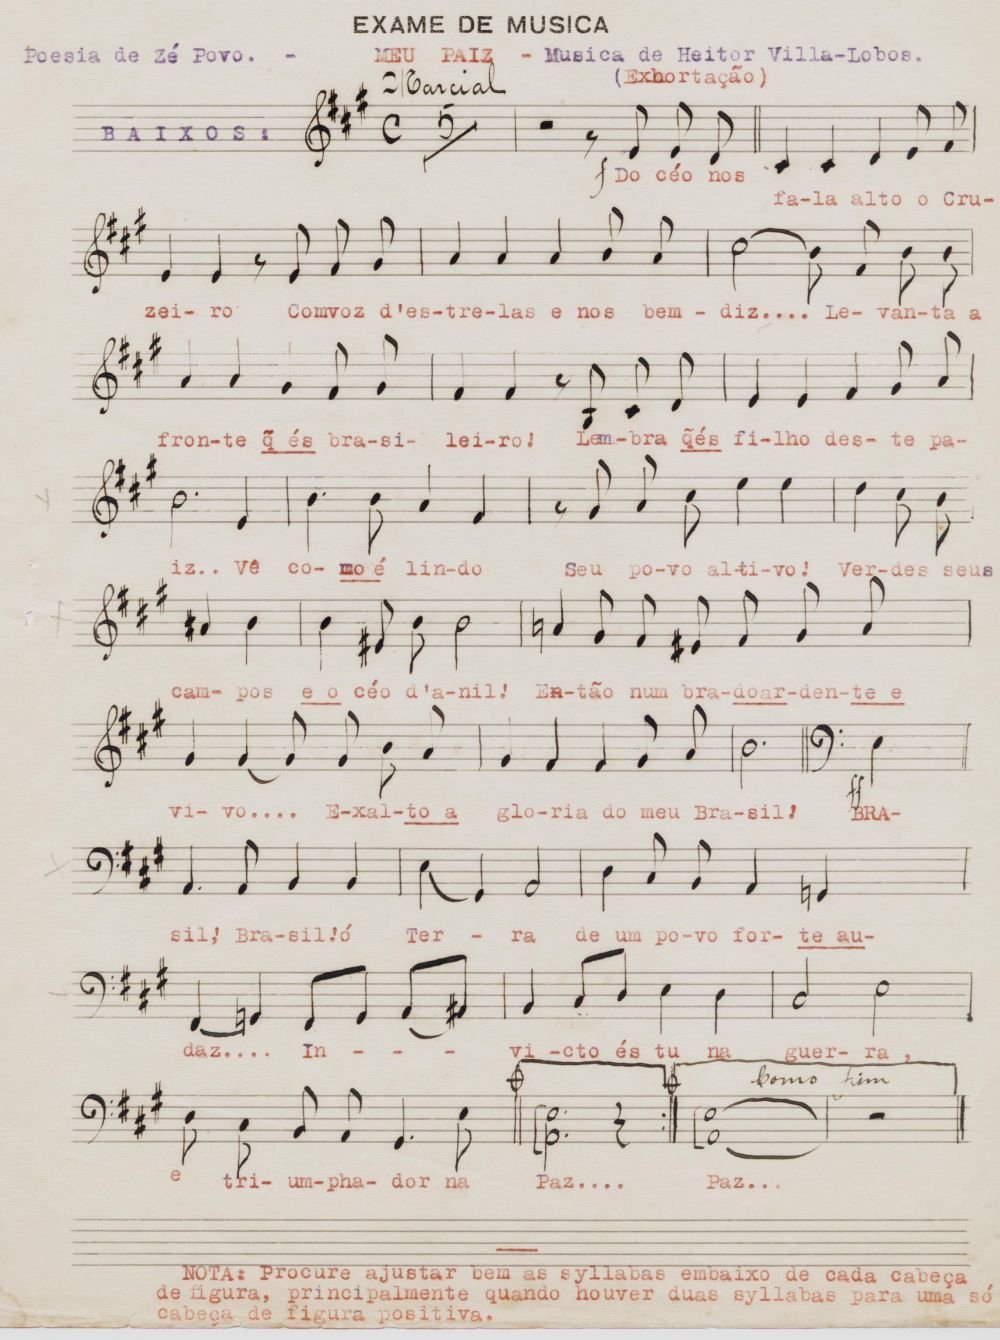 EXAME DE MUSICA
Poesia de Zé Povo. - MEU PAIZ - Musica de Heitor Villa-Lobos.
(Exhortação)
Marcial
BAIXOS: 5
f Do céo nos
fa-la alto o Cru-
zei- ro Comvoz d'es-tre-las e nos bem - diz.... Le- van-ta a
fron-te q̃ és bra-si- lei-ro! Lem-bra q̃és fi-lho des- te pa-
iz.. Vê co- mo é lin-do Seu po-vo al-ti-vo! Ver-des seus
cam- pos e o céo d'a-nil! En-tão num bra-doar-den-te e
vi- vo.... E-xal-to a glo-ria do meu Bra-sil! ff BRA-
sil! Bra-sil!ó Ter - ra de um po-vo for- te au-
daz.... In - - - vi -cto és tu na guer- ra ,
Como fim
e tri- um-pha- dor na Paz.... Paz...
NOTA: Procure ajustar bem as syllabas embaixo de cada cabeça
de figura, principalmente quando houver duas syllabas para uma só
cabeça de figura positiva.